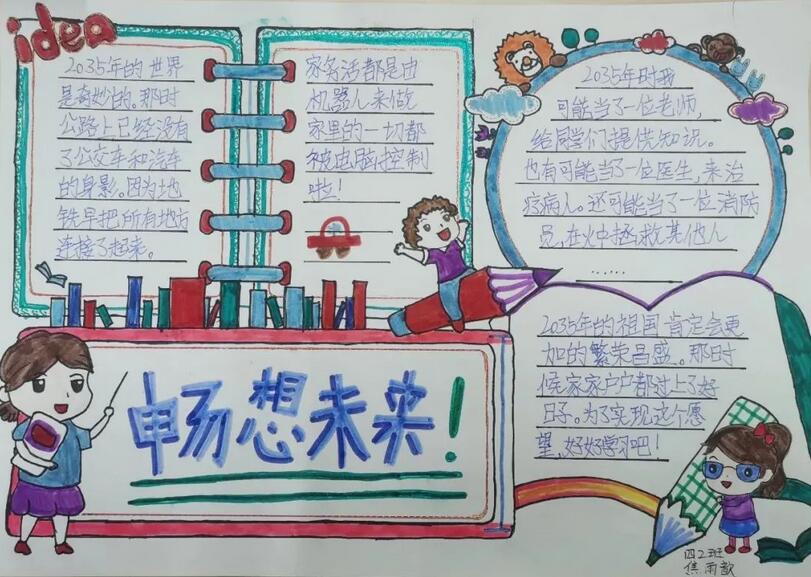 idea
2035年的世界
是奇妙的。那时
公路上已经没有
了公交车和汽车
的身影。因为地
铁早把所有地方
连接了起来。
家务活都是由
机器人来做
家里的一切都
被电脑控制
啦!
2035年时我
可能当了一位老师,
给同学们提供知识。
也有可能当了一位医生,来治
疗病人。还可能当了一位消防
员,在火中拯救其他人
......
畅想未来!
2035年的祖国肯定会更
加的繁荣昌盛。那时
候家家户户都过上了好
日子。为了实现这个愿
望,好好学习吧!
四2班
焦雨歆